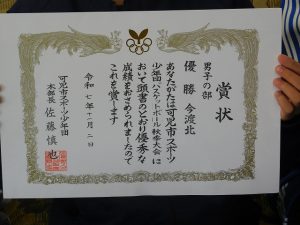 賞状
男子の部
優勝 今渡北
あなたがたは可児市スポーツ
少年団バスケットボール秋季大会に
おいて頭書のとおり優秀な
成績をおさめられましたので
これを賞します
令和七年十一月二日
可児市スポーツ少年団
本部長 佐藤慎也